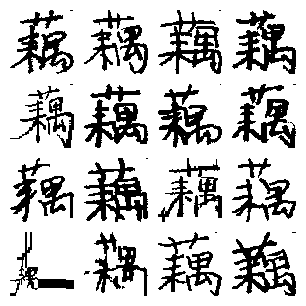 藕藕藕藕
藕藕藕藕
藕藕藕藕
藕藕藕藕